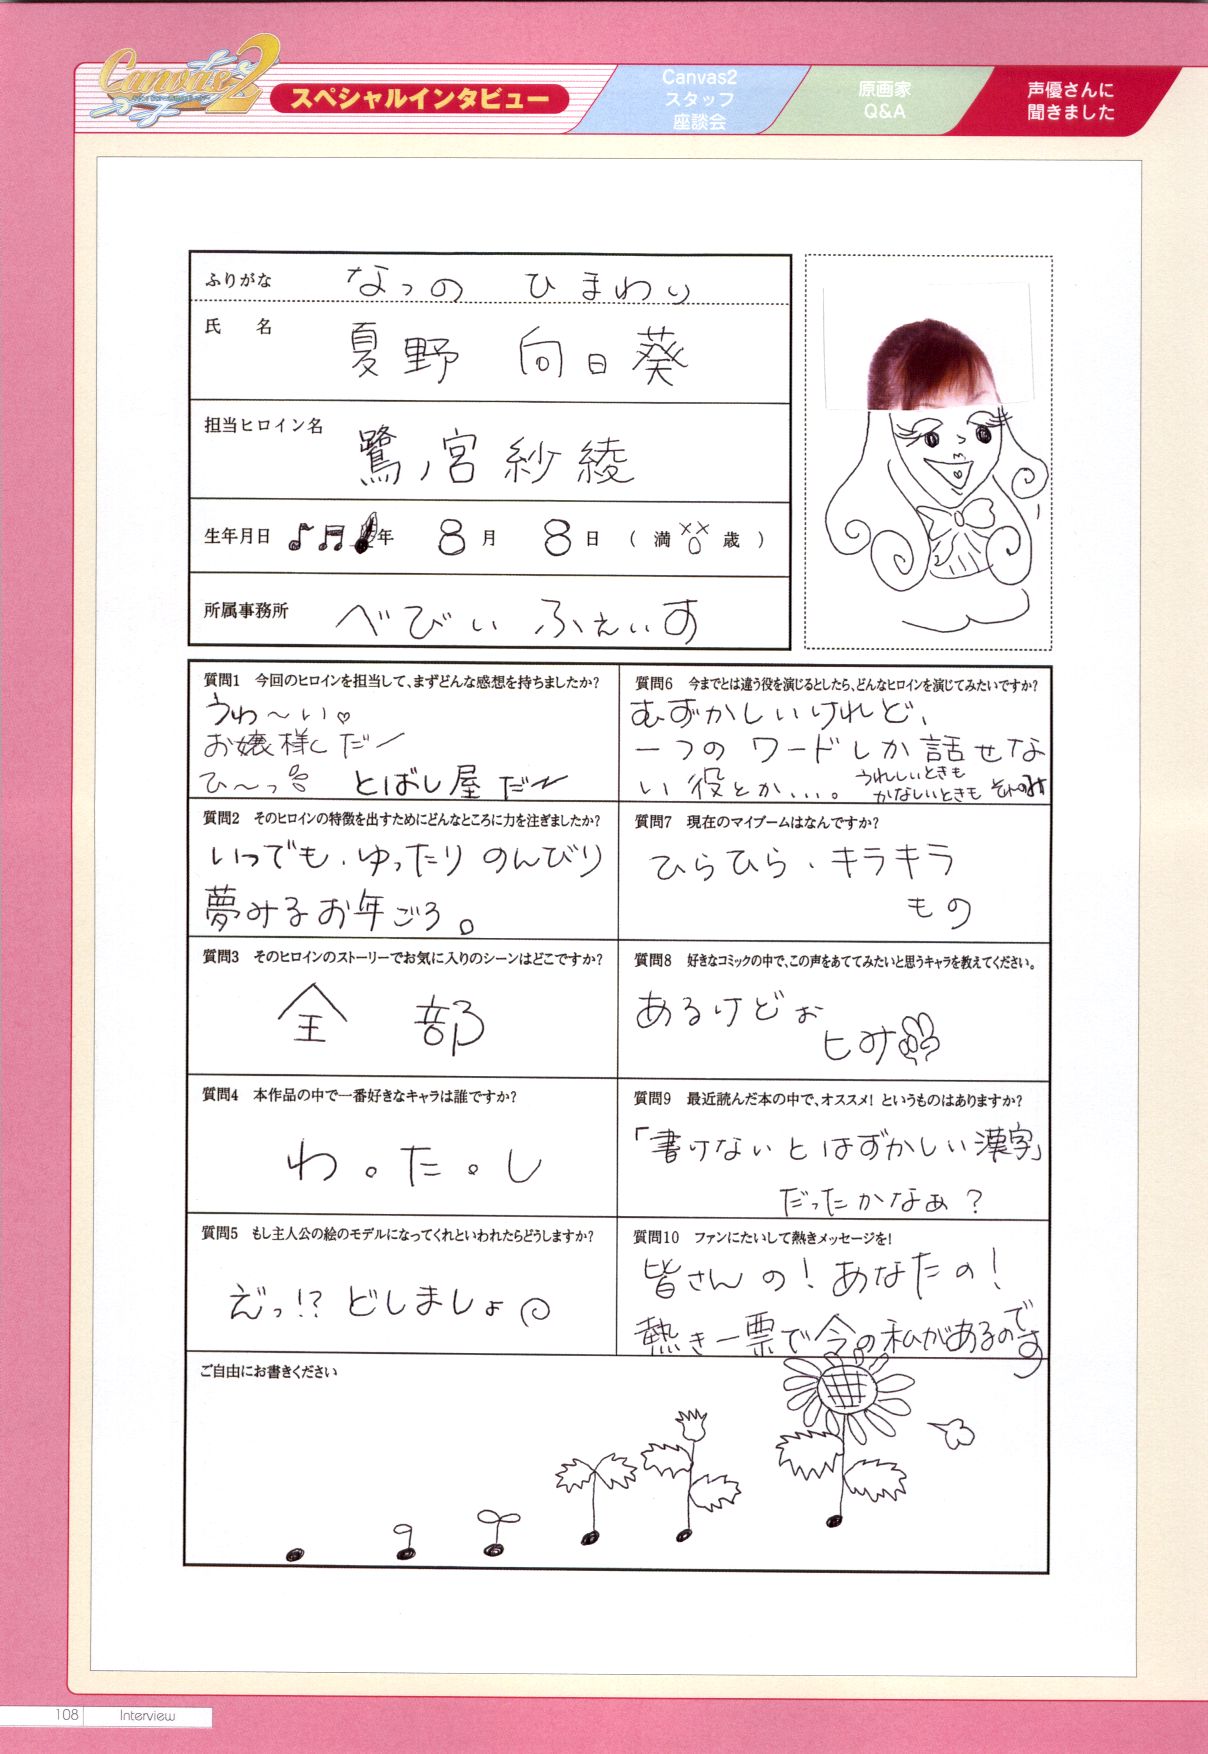 Canvas2
スペシャルインタビュー
Canvas2
スタッフ
座談会
原画家
Q&A
声優さんに
聞きました
ふりがな なつの ひまわり
氏 名 夏野 向日葵
担当ヒロイン名 鷺ノ宮紗綾
生年月日 年 8月 8日 (満 歳)
所属事務所 べびぃ ふぇいす
質問1 今回のヒロインを担当して、まずどんな感想を持ちましたか?
うわ〜い♡
お嬢様だー
ひ〜っ とばし屋だ
質問2 そのヒロインの特徴を出すためにどんなところに力を注ぎましたか?
いつでも、ゆったりのんびり
夢みるお年ごろ。
質問3 そのヒロインのストーリーでお気に入りのシーンはどこですか?
全 部
質問4 本作品の中で一番好きなキャラは誰ですか?
わ。た。し
質問5 もし主人公の絵のモデルになってくれといわれたらどうしますか?
えっ!? どしましょ
質問6 今までとは違う役を演じるとしたら、どんなヒロインを演じてみたいですか?
むずかしいけれど、
一つのワードしか話せな
い役とか...。 うれしいときも
かなしいときも それのみ
質問7 現在のマイブームはなんですか?
ひらひら、キラキラ
もの
質問8 好きなコミックの中で、この声をあててみたいと思うキャラを教えてください。
あるけどぉ
ヒミツ
質問9 最近読んだ本の中で、オススメ! というものはありますか?
「書けないとはずかしい漢字」
だったかなぁ?
質問10 ファンにたいして熱きメッセージを!
皆さんの!あなたの!
熱き一票で今の私があるのです
ご自由にお書きください
108 Interview